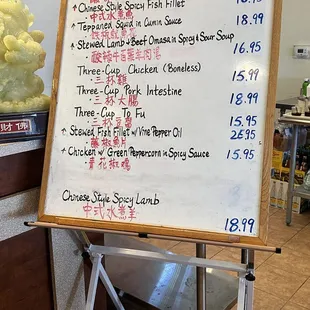 Chinese Style Spicy Fish Fillet
中式水煮魚
18.99
Teppaned Squid in Cumin Sauce
18.99
Stewed Lamb & Beef Omasa in Spicy & Sour Soup
16.95
Three-Cup Chicken (Boneless)
15.99
三杯雞
Three-Cup Pork Intestine
18.99
三杯大腸
Three-Cup To Fu
15.95
三杯豆腐
Stewed Fish Fillet w/ Vine Pepper Oil
25.95
藤椒魚片
Chicken w/ Green Peppercorn in Spicy Sauce
15.95
青花椒雞
Chinese Style Spicy Lamb
中式水煮羊
18.99
財